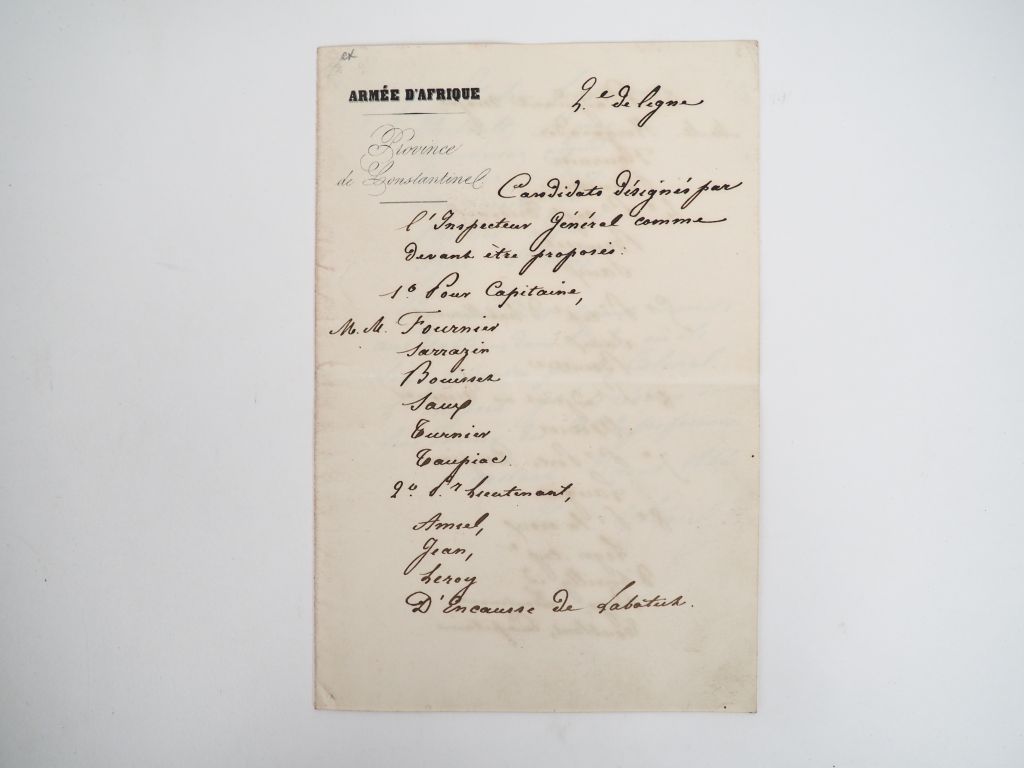 ex
ARMÉE D'AFRIQUE
2.e de ligne
Province
de Constantine
Candidats désignés par
l'Inspecteur Général comme
devant être proposés:
1.o Pour Capitaine,
M. M. Fournier
Sarrazin
Bouisset
Saux
Turnier
Taupiac.
2.o P.r Lieutenant,
Amsel,
Jean,
Leroy
D'Encausse de Labatut.